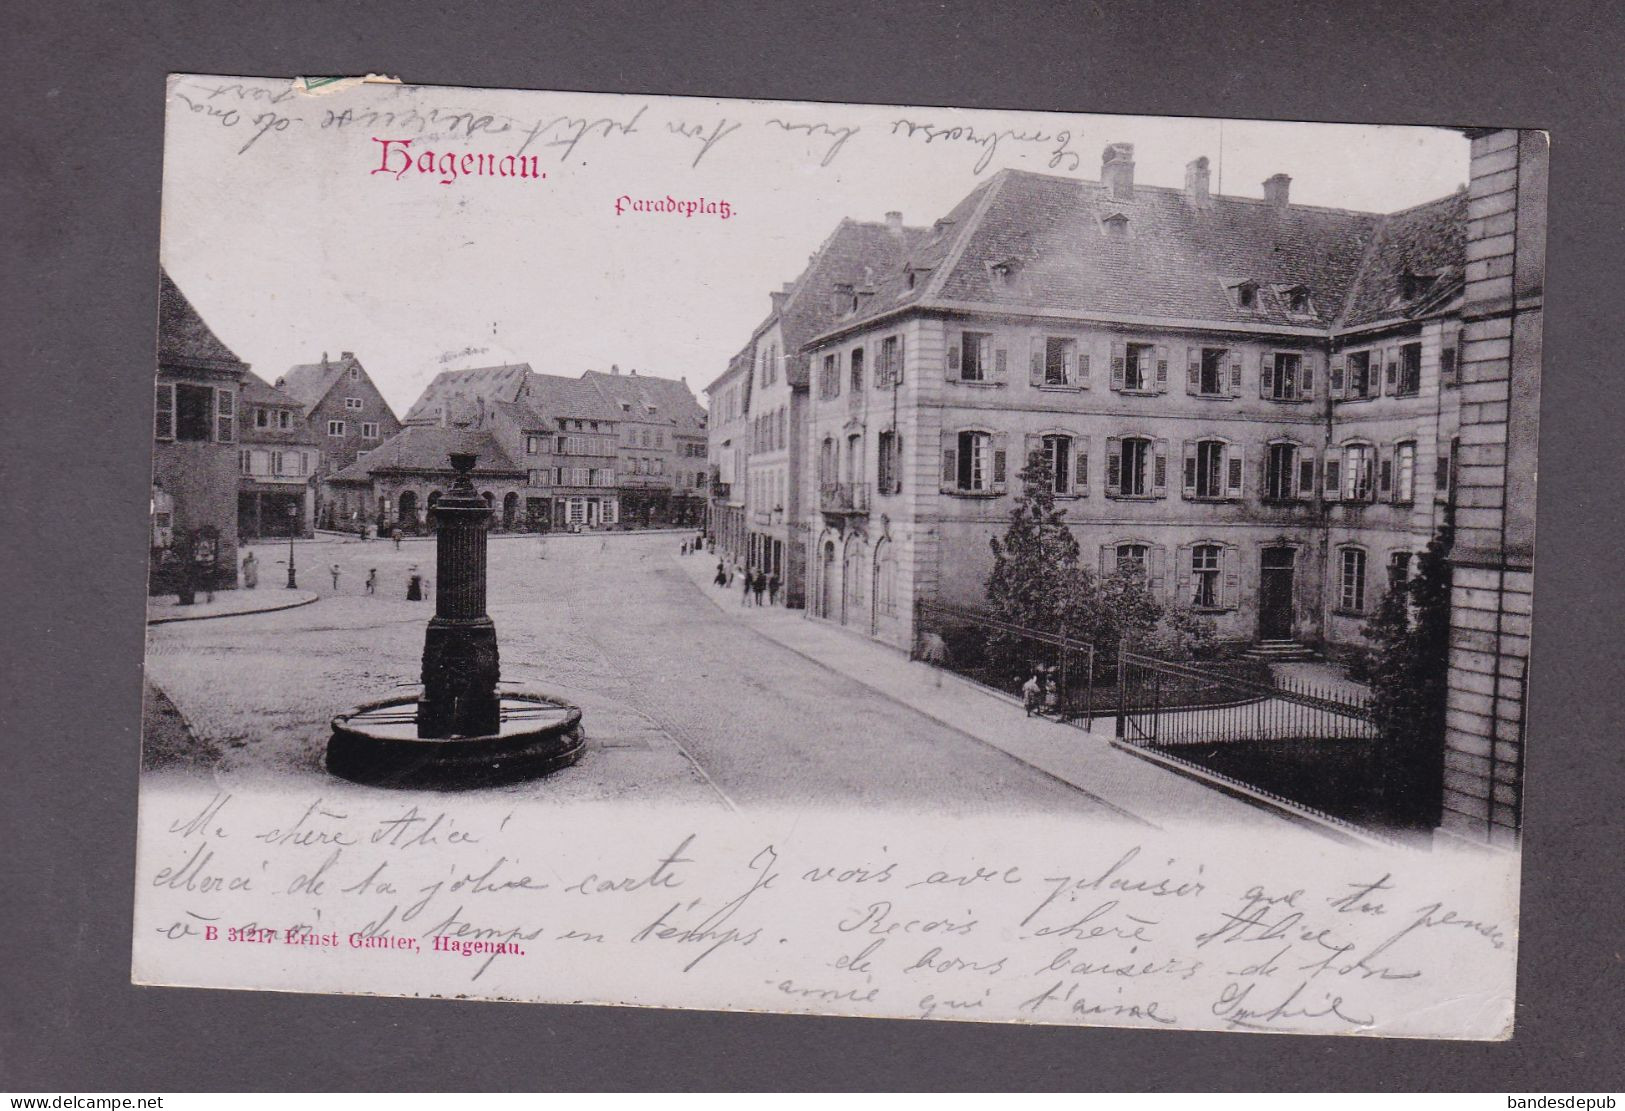 Embrasse bien ton petit de ma part
Hagenau.
Paradeplatz.
Ma chère Alice!
Merci de ta jolie carte Je vois avec plaisir que tu penses
à moi de temps en temps. Recois chère Alice
B 31217 Ernst Ganter, Hagenau.
de bons baisers de ton
amie qui t'aime Sophie
delcampe.net
bandesdepub